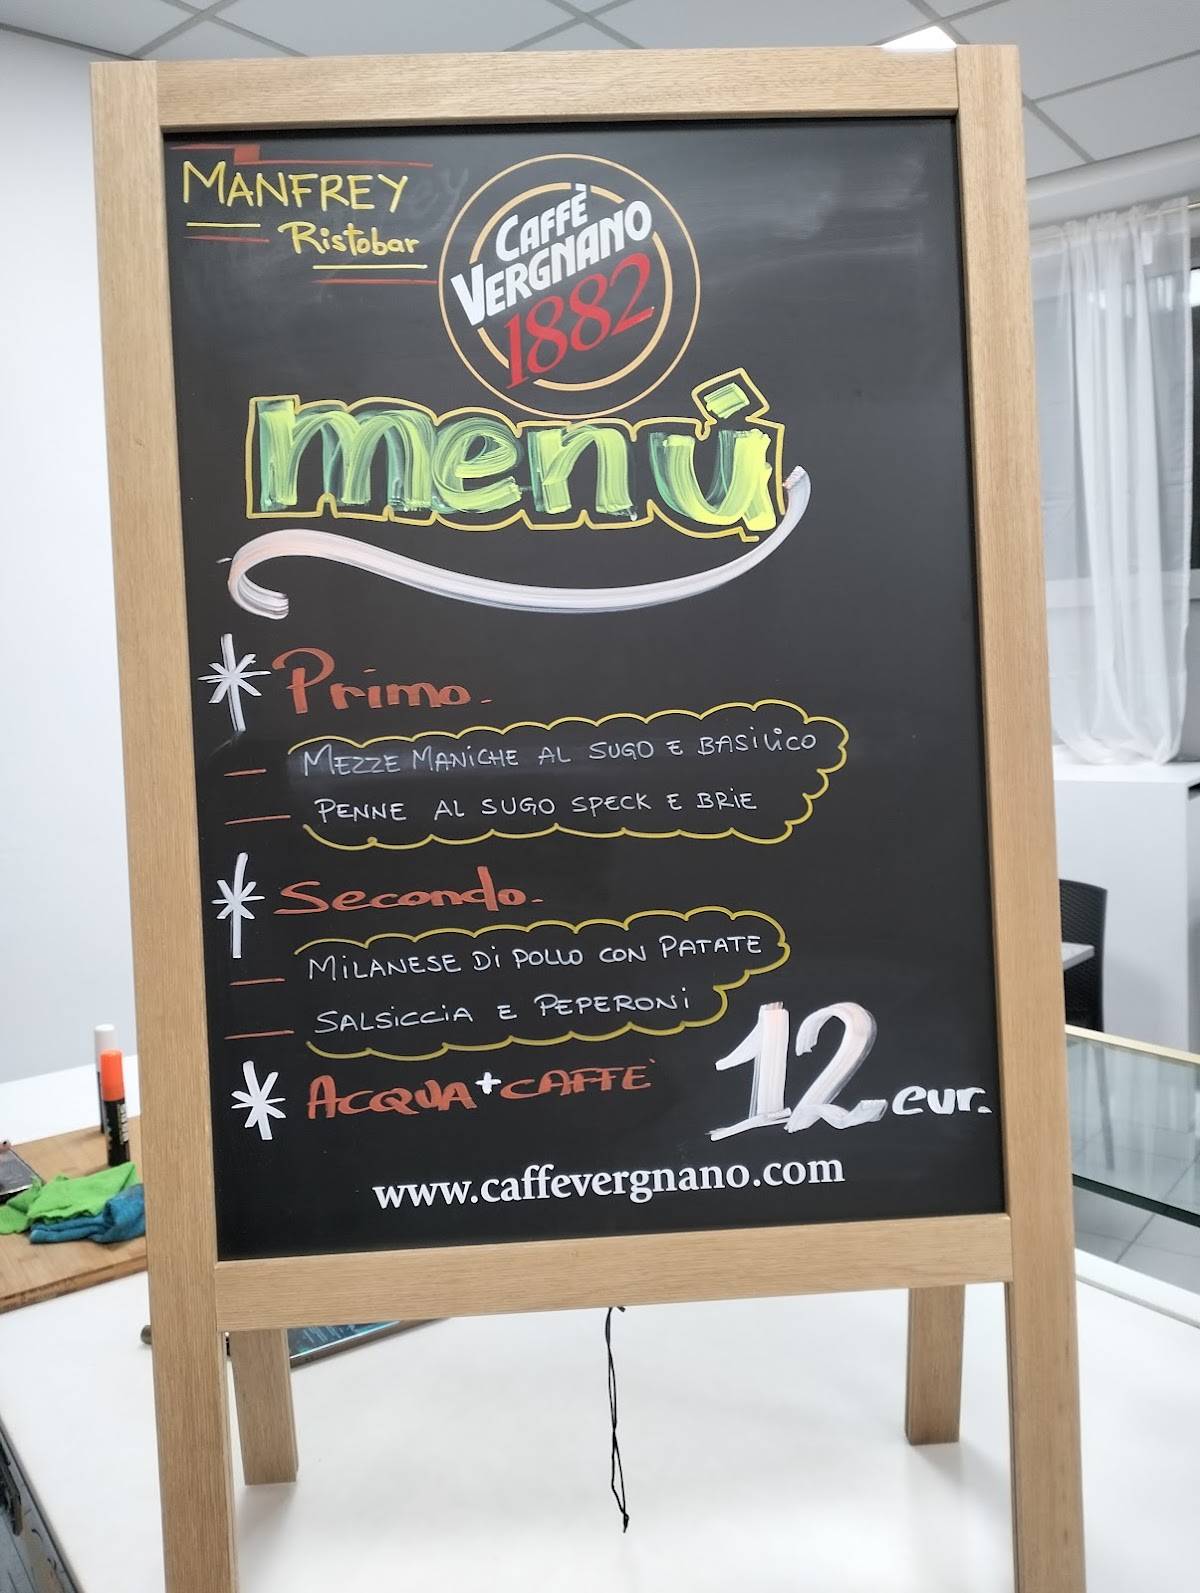 MANFREY
Ristobar
CAFFÈ
VERGNANO
1882
menú
Primo.
MEZZE MANICHE AL SUGO E BASILICO
PENNE AL SUGO SPECK E BRIE
Secondo.
MILANESE DI POLLO CON PATATE
SALSICCIA E PEPERONI
ACQUA + CAFFE'
12 eur.
www.caffevergnano.com